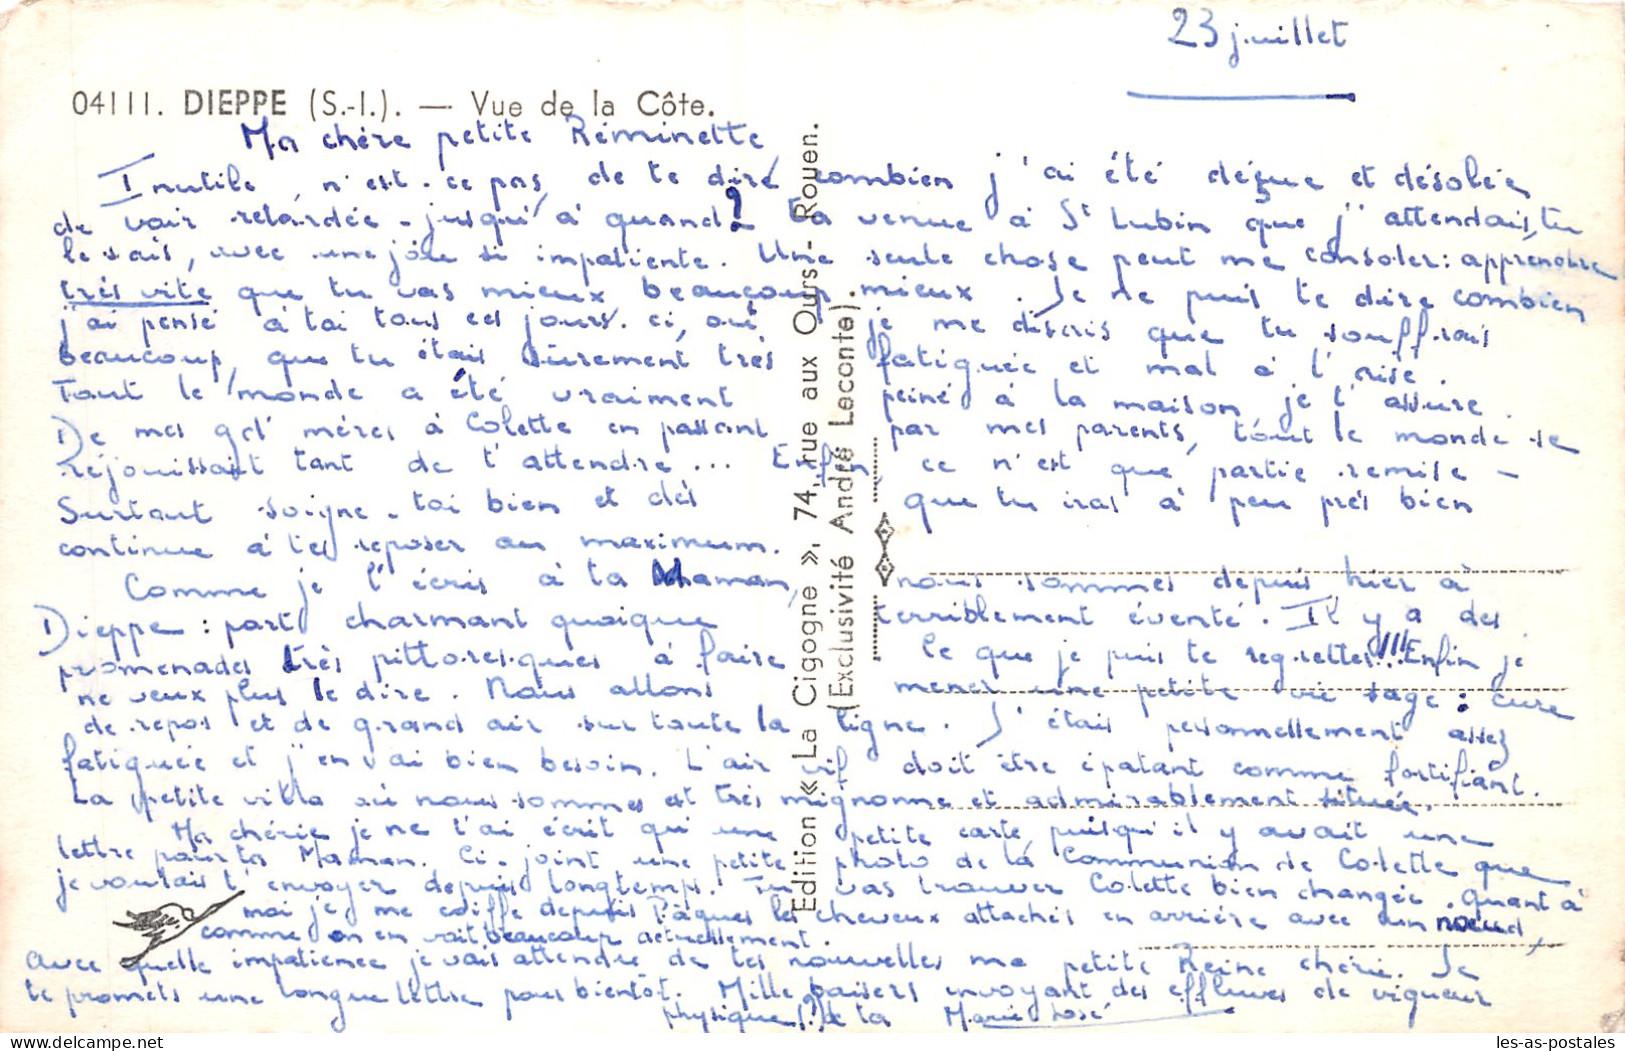 23 juillet
04111. DIEPPE (S.-I.). — Vue de la Côte.
Ma chère petite Réminette
Inutile, n'est-ce pas, de te dire combien j'ai été déçue et désolée
de voir retardée - jusqu'à quand? ta venue à St Lubin que j'attendais, tu
le sais, avec une joie si impatiente. Une seule chose peut me consoler: apprendre
très vite que tu vas mieux beaucoup mieux. Je ne puis te dire combien
j'ai pensé à toi tous ces jours-ci, où je me disais que tu souffrais
beaucoup, que tu étais sûrement très fatiguée et mal à l'aise.
Tout le monde a été vraiment peiné à la maison, je t'assure.
De mes gd' mères à Colette en passant par mes parents, tout le monde se
réjouissait tant de t'attendre... Enfin, ce n'est que partie remise -
Surtout soigne-toi bien et dès que tu iras à peu près bien
continue à te reposer au maximum.
Comme je l'écris à ta Maman, nous sommes depuis hier à
Dieppe: port charmant quoique terriblement éventé. Il y a des
promenades très pittoresques à faire ce que je puis te regretter!!! Enfin je
ne veux plus le dire. Nous allons mener une petite vie sage: cure
de repos et de grand air sur toute la ligne. J'étais personnellement assez
fatiguée et j'en ai bien besoin. L'air vif doit être épatant comme fortifiant.
La petite villa où nous sommes est très mignonne et admirablement située.
Ma chérie je ne t'ai écrit qu'une petite carte, puisqu'il y avait une
lettre pour ta Maman. Ci-joint une petite photo de la Communion de Colette que
je voulais t'envoyer depuis longtemps. Tu vas trouver Colette bien changée. Quant à
moi je me coiffe depuis Pâques les cheveux attachés en arrière avec un noeud,
comme on en voit beaucoup actuellement.
Avec quelle impatience je vais attendre de tes nouvelles ma petite Reine chérie. Je
te promets une longue lettre pour bientôt. Mille baisers envoyant des effluves de vigueur
physique (?) de ta Marie José
Edition « La Cigogne », 74, rue aux Ours - Rouen.
(Exclusivité André Leconte).
les-as-postales